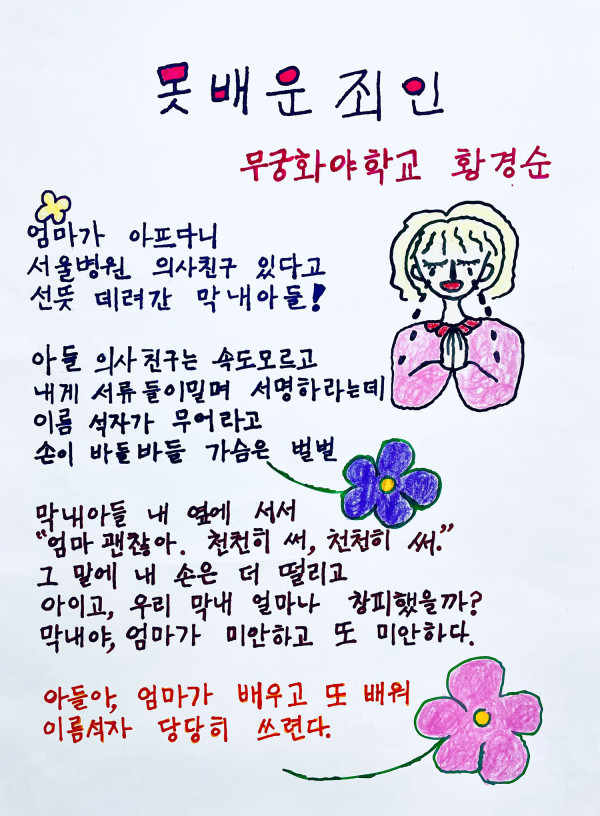 못배운 죄인
무궁화야학교 황경순
엄마가 아프다니
서울병원 의사친구 있다고
선뜻 데려간 막내아들!
아들 의사친구는 속도모르고
내게 서류들이밀며 서명하라는데
이름 석자가 무어라고
손이 바들바들 가슴은 벌벌
막내아들 내 옆에 서서
"엄마 괜찮아. 천천히 써, 천천히 써."
그 말에 내 손은 더 떨리고
아이고, 우리 막내 얼마나 창피했을까?
막내야, 엄마가 미안하고 또 미안하다.
아들아, 엄마가 배우고 또 배워
이름석자 당당히 쓰련다.